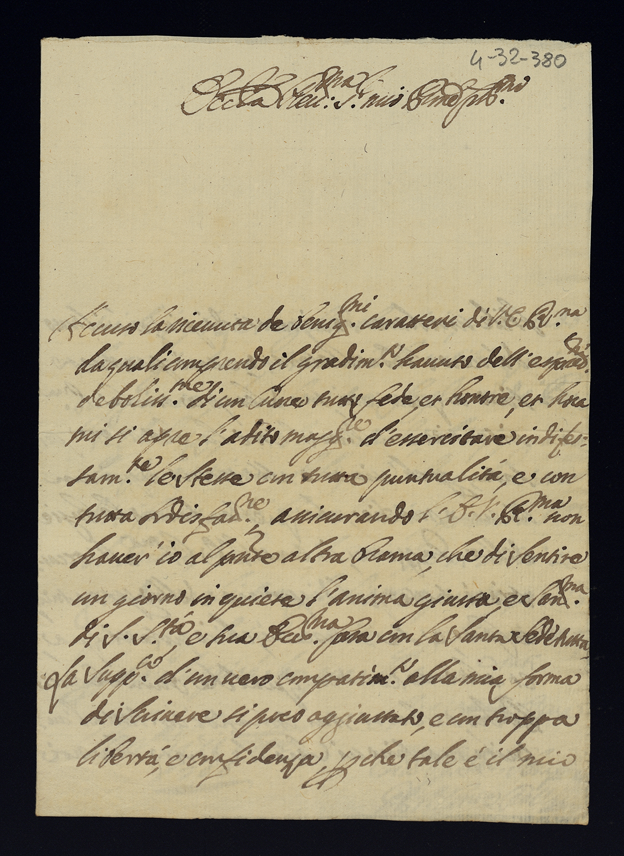 4-32-380
Ecc.za Rev.ma S.r mio Pne
Accuso la ricevuta de benig.mi caratteri di V. E. R.ma
da quali comprendo il gradim.to havuto dell'
deboliss.me di un Cuore tutto fede, et honore, et hora
mi si apre l'adito magg.re d'essercitare indifes-
sam.te le stesse con tutta puntualitá, e con
tutta , assicurando l' E. V. R.ma non
haver' io al p̃nte altra brama, che di sentire
un giorno in quiete l'anima giusta, e San.ma
di S. S.tá, e sua con la Santa Sede tutta,
La supp.co d'un vero compatim.to alla mia forma
di scrivere si poco aggiustato, e con troppa
libertá, e confidenza che tale é il mio